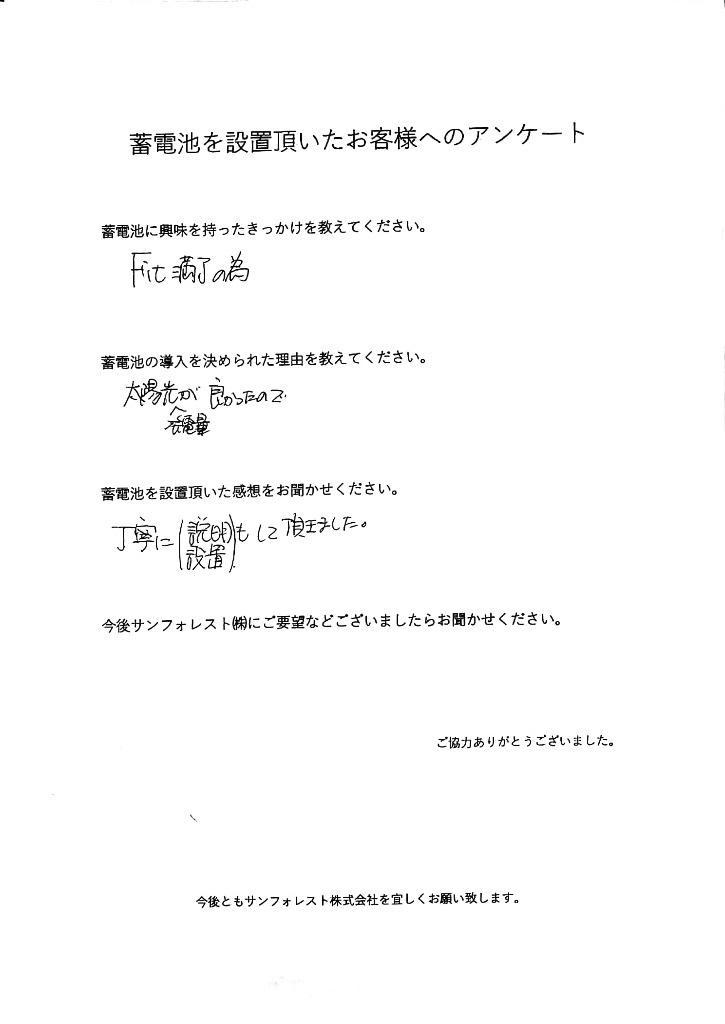 蓄電池を設置頂いたお客様へのアンケート
蓄電池に興味を持ったきっかけを教えてください。
Fit 満了の為
蓄電池の導入を決められた理由を教えてください。
太陽光が良かったので
発電量
蓄電池を設置頂いた感想をお聞かせください。
丁寧に(説明)もして頂きました。
設置
今後サンフォレスト㈱にご要望などございましたらお聞かせください。
ご協力ありがとうございました。
今後ともサンフォレスト株式会社を宜しくお願い致します。